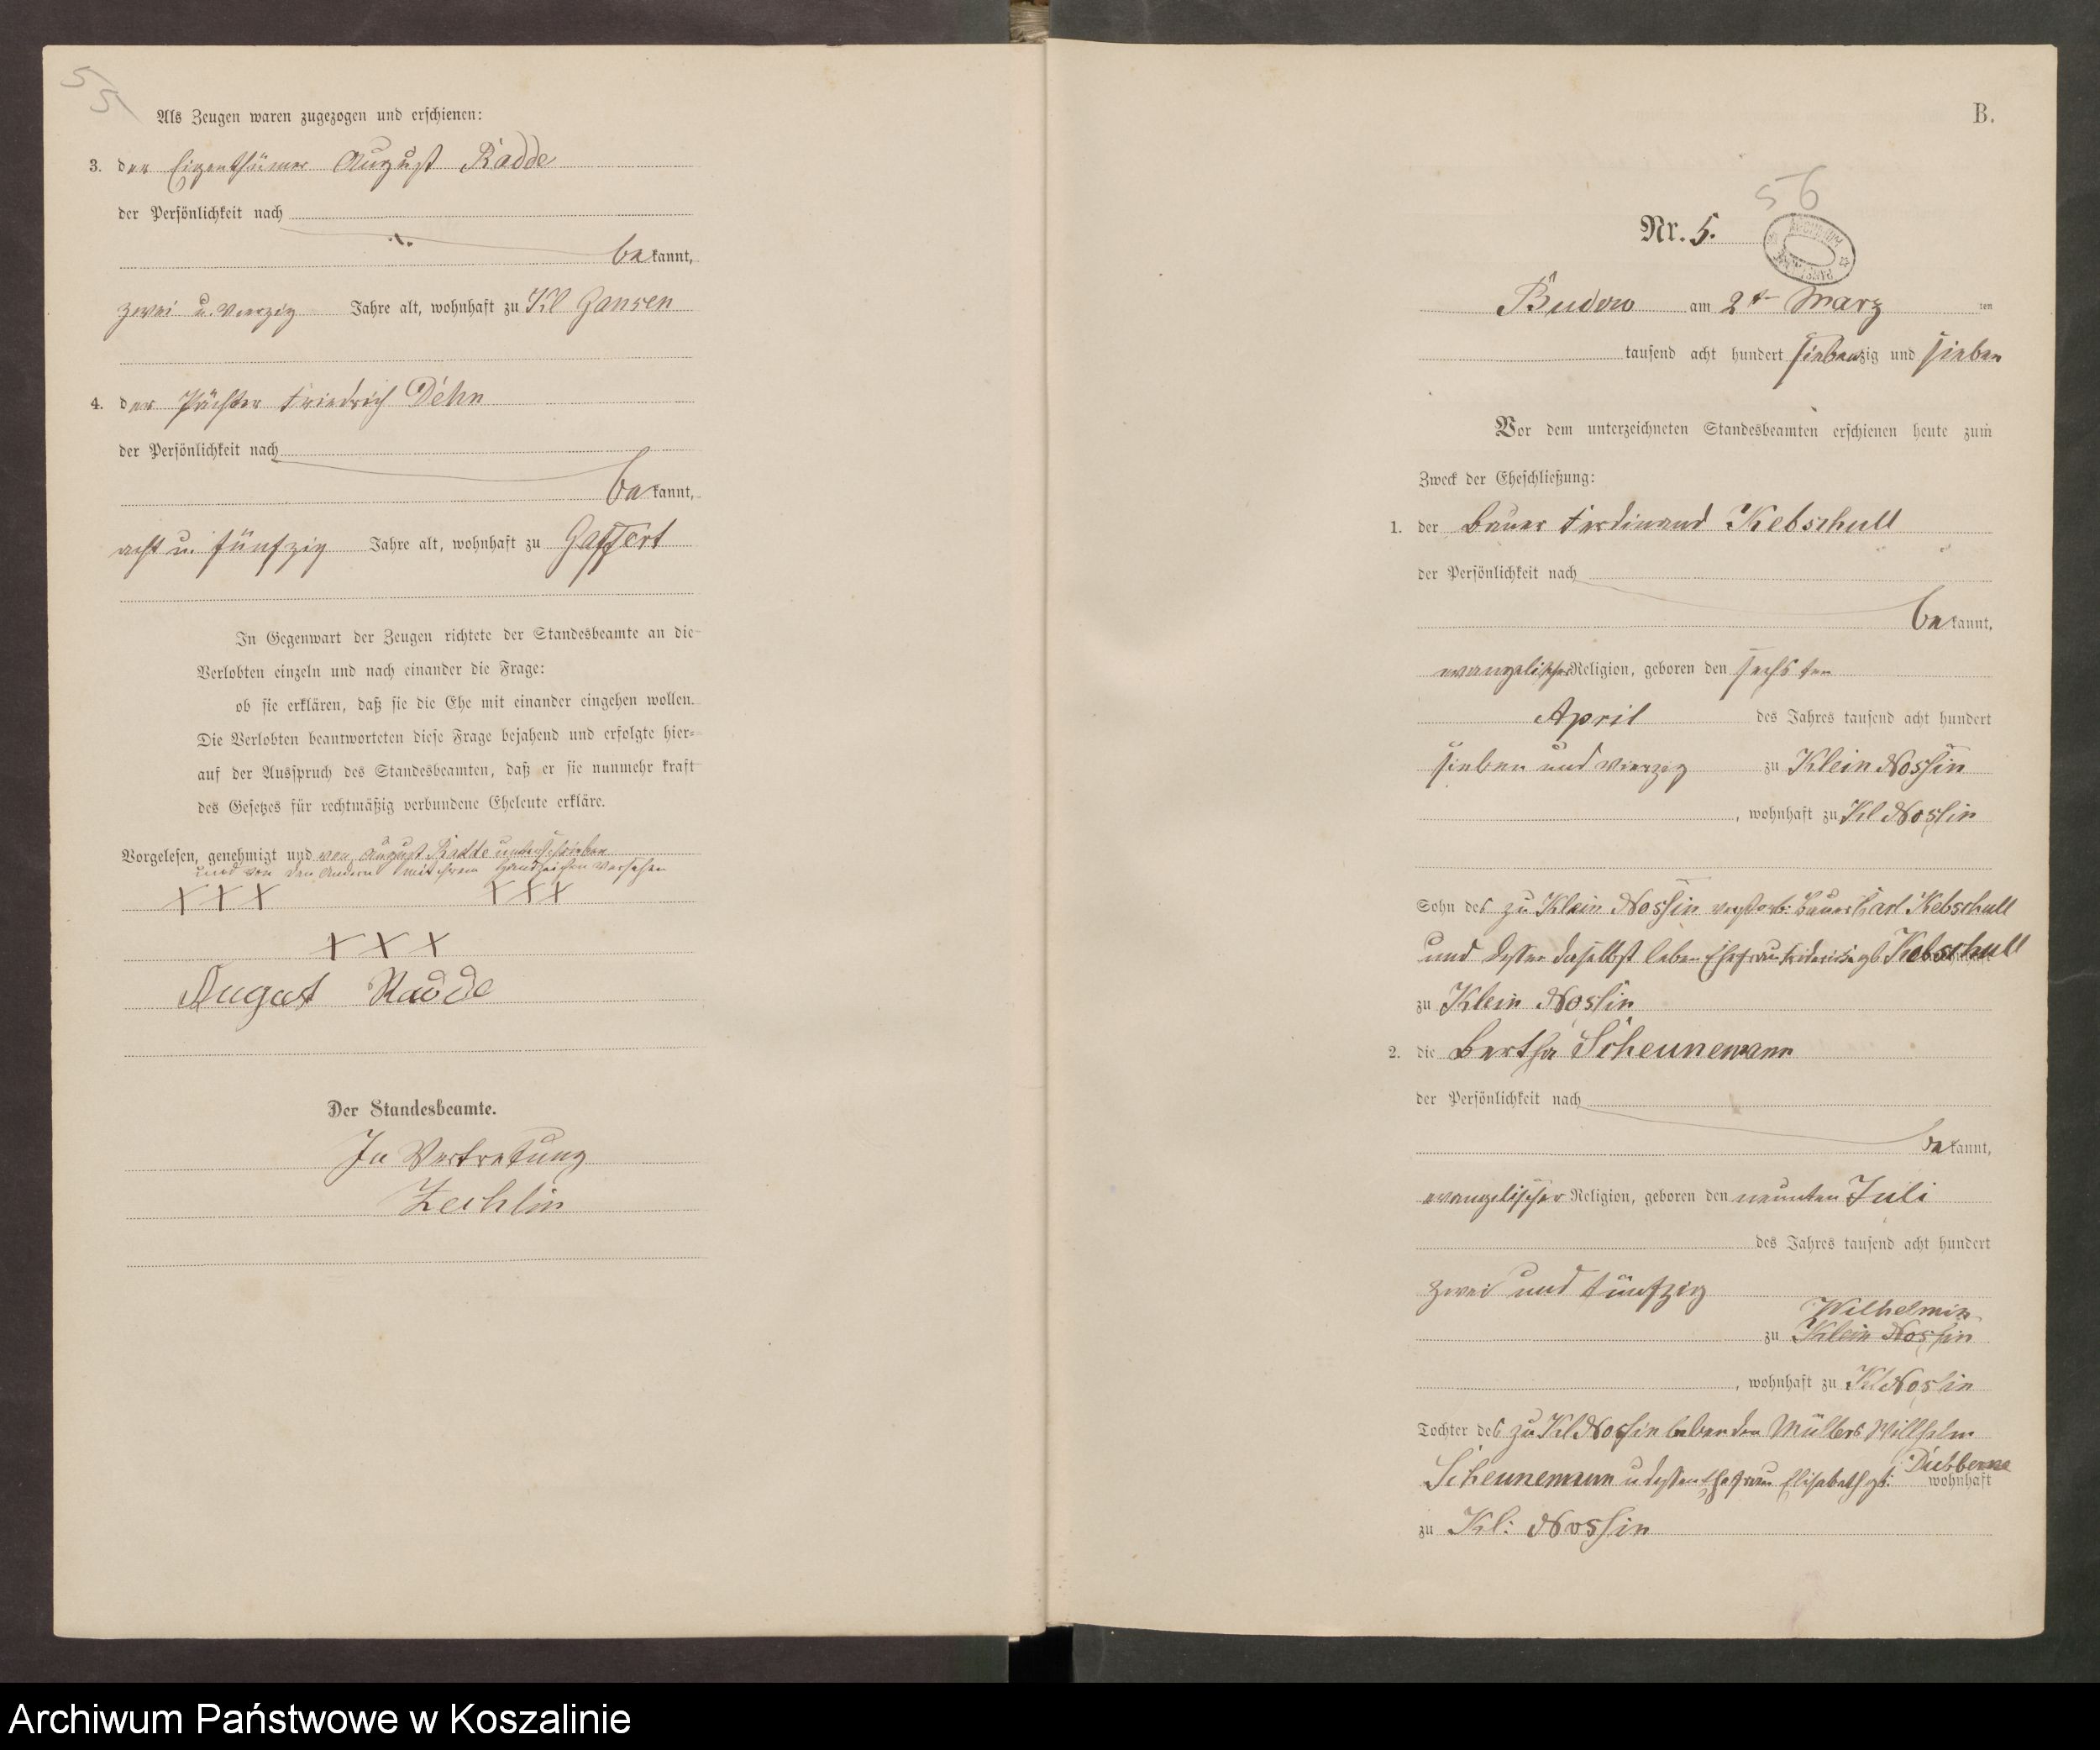 55
Als Zeugen waren zugezogen und erschienen:
3. der Eigenthümer August Radde
der Persönlichkeit nach
bekannt,
zwei u. vierzig Jahre alt, wohnhaft zu Kl Gansen
4. der Pächter Friedrich Dehn
der Persönlichkeit nach
bekannt,
acht u. fünfzig Jahre alt, wohnhaft zu Gaffert
In Gegenwart der Zeugen richtete der Standesbeamte an die
Verlobten einzeln und nach einander die Frage:
ob sie erklären, daß sie die Ehe mit einander eingehen wollen.
Die Verlobten beantworteten diese Frage bejahend und erfolgte hier-
auf der Ausspruch des Standesbeamten, daß er sie nunmehr kraft
des Gesetzes für rechtmäßig verbundene Eheleute erkläre.
Vorgelesen, genehmigt und von August Radde unterschrieben
und von den Andern mit ihrem Handzeichen versehen
XXX XXX
XXX
August Radde
Der Standesbeamte.
In Vertretung
Zechlin
B.
56
Nr. 5.
ARCHIWUM PAŃSTWOWE
Budow am 2t März ten
tausend acht hundert siebenzig und sieben
Vor dem unterzeichneten Standesbeamten erschienen heute zum
Zweck der Eheschließung:
1. der Bauer Ferdinand Kebschull
der Persönlichkeit nach
bekannt,
evangelischer Religion, geboren den sechsten
April des Jahres tausend acht hundert
sieben und vierzig zu Klein Nossin
, wohnhaft zu Kl Nossin
Sohn des zu Klein Nossin verstorb: Bauer Carl Kebschull
und dessen daselbst leben Ehefrau Friderike gb Kebschull
zu Klein Nossin
2. die Bertha Scheunemann
der Persönlichkeit nach
bekannt,
evangelischer Religion, geboren den neunten Juli
des Jahres tausend acht hundert
zwei und fünfzig
Wilhelmin
zu Klein Nossin
, wohnhaft zu Kl Nossin
Tochter des zu Kl Nossin lebenden Müllers Willhelm
Scheunemann u dessen Ehefrau Elisabeth gb: Dubberne
wohnhaft
zu Kl: Nossin
Archiwum Państwowe w Koszalinie